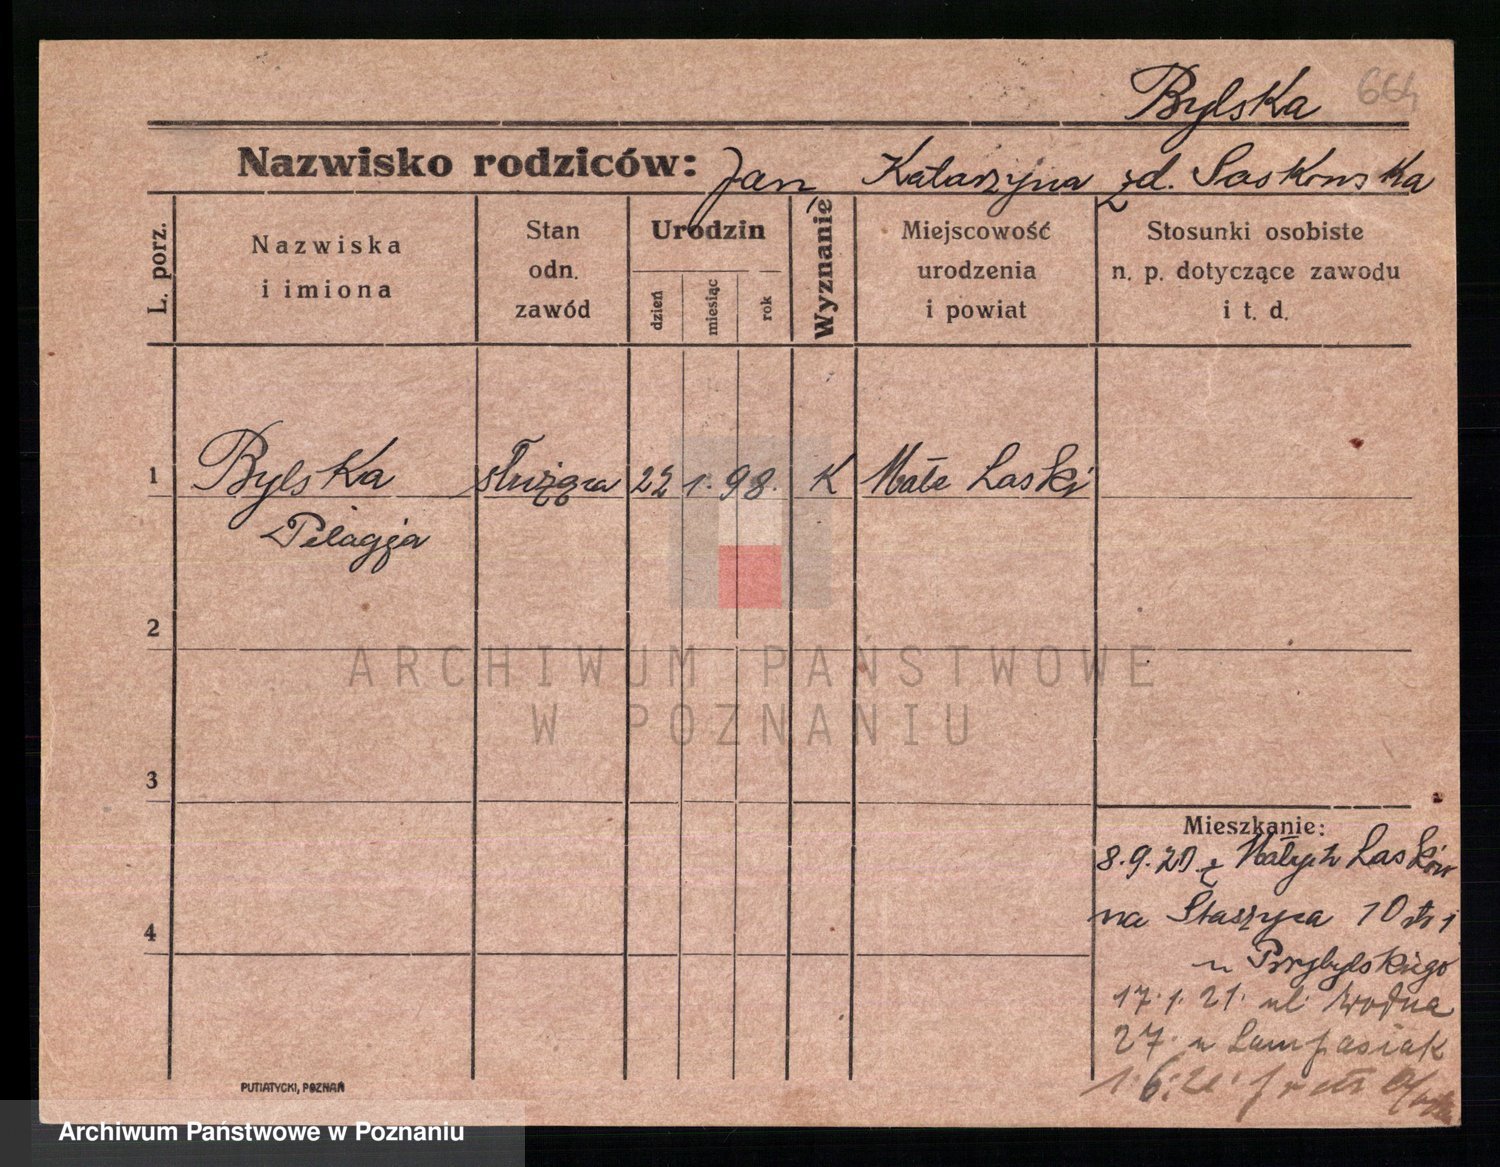 Bylska 664
Nazwisko rodziców: Jan, Katarzyna zd. Saskowska
L. porz.
Nazwiska
i imiona
Stan
odn.
zawód
Urodzin
dzień
miesiąc
rok
Wyznanie
Miejscowość
urodzenia
i powiat
Stosunki osobiste
n. p. dotyczące zawodu
i t. d.
1 Bylska służąca 22 1. 98. K Małe Laski
Pelagja
2
ARCHIWUM PAŃSTWOWE
W POZNANIU
3
Mieszkanie:
8.9.20 z Małych Lasków
4
na Staszyca 10
u Przybylskiego
17.1.21. ul. Wodna
27. u
1.6.21.
PUTIATYCKI, POZNAŃ
Archiwum Państwowe w Poznaniu